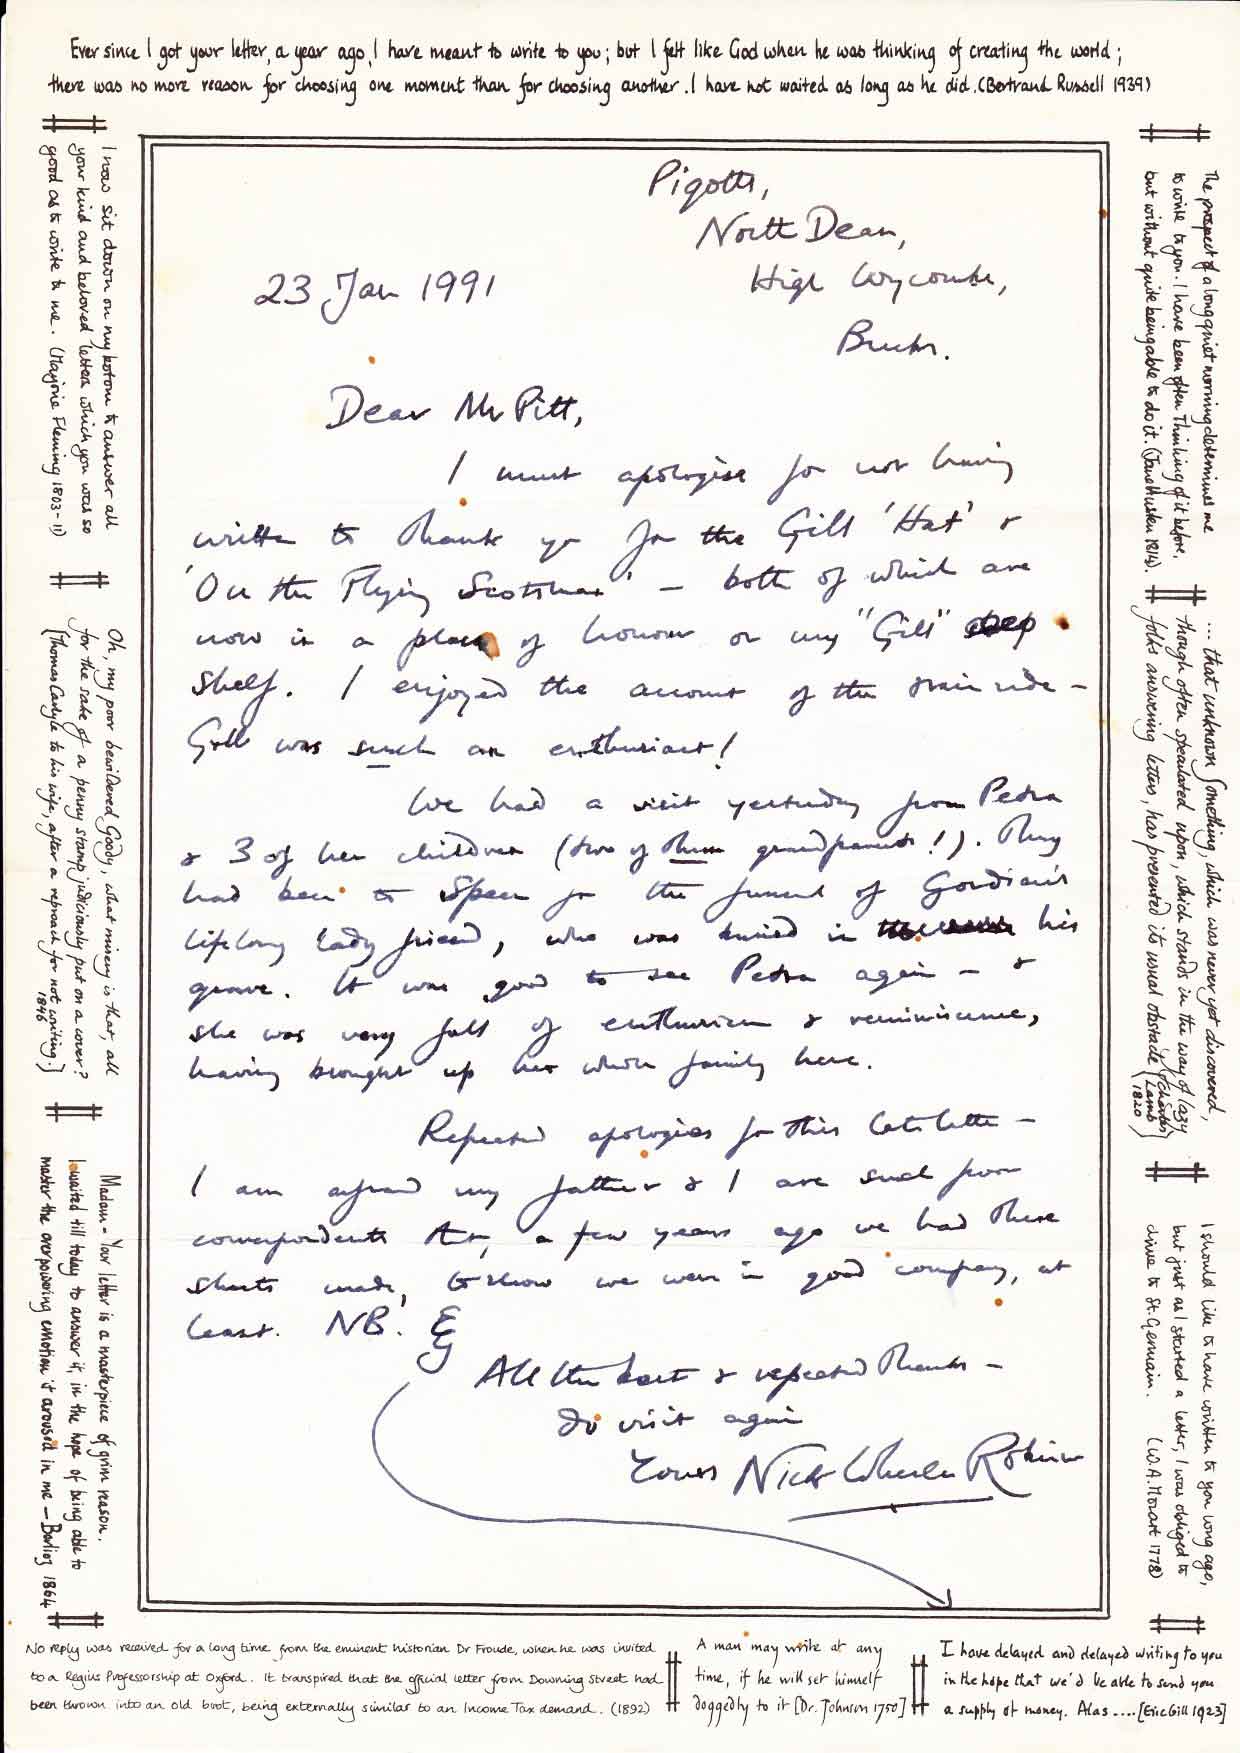 Ever since I got your letter, a year ago, I have meant to write to you; but I felt like God when he was thinking of creating the world;
there was no more reason for choosing one moment than for choosing another. I have not waited as long as he did. (Bertrand Russell 1939)
I now sit down on my botom to answer all
your kind and beloved letters which you was so
good as to write to me. (Marjorie Fleming 1803-11)
Oh, my poor bewildered Goody, what misery is that, all
for the sake of a penny stamp judiciously put on a cover?
(Thomas Carlyle to his wife, after a reproach for not writing.)
1846
Madam - Your letter is a masterpiece of grim reason.
I waited till today to answer it, in the hope of being able to
master the overpowering emotion it aroused in me — Berlioz 1864
Pigotts,
North Dean,
High Wycombe,
Bucks.
23 Jan 1991
Dear Mr Pitt,
I must apologise for not having
written to thank you for the Gill 'Hat' &
'On the Flying Scotsman' - both of which are
now in a place of honour on my "Gill"
shelf. I enjoyed the account of the train ride -
Gill was such an enthusiast!
We had a visit yesterday from Petra
& 3 of her children (two of them grandparents!). They
had been to Speen for the funeral of Gordian's
lifelong lady friend, who was buried in his
grave. It was good to see Petra again - &
she was very full of enthusiasm & reminiscence,
having brought up her whole family here.
Repeated apologies for this late letter -
I am afraid my father & I are such poor
correspondents that, a few years ago we had these
sheets made, to show we were in good company, at
least. NB. EG
All the best & repeated thanks -
do visit again
Yours Nick Wheeler Robinson
The prospect of a long quiet morning determines me
to write to you. I have been often Thinking of it before,
but without quite being able to do it. (Jane Austen 1814).
... that unknown Something, which was never yet discovered,
though often speculated upon, which stands in the way of lazy
folks answering letters, has presented its usual obstacle
(Charles
Lamb
1820)
I should like to have written to you long ago,
but just as I started a letter, I was obliged to
drive to St. Germain. (W.A. Mozart 1778)
No reply was received for a long time from the eminent historian Dr Froude, when he was invited
to a Regius Professorship at Oxford. It transpired that the official letter from Downing Street had
been thrown into an old boot, being externally similar to an Income Tax demand. (1892)
A man may write at any
time, if he will set himself
doggedly to it [Dr. Johnson 1750]
I have delayed and delayed writing to you
in the hope that we'd be able to send you
a supply of money. Alas .... [Eric Gill 1923]